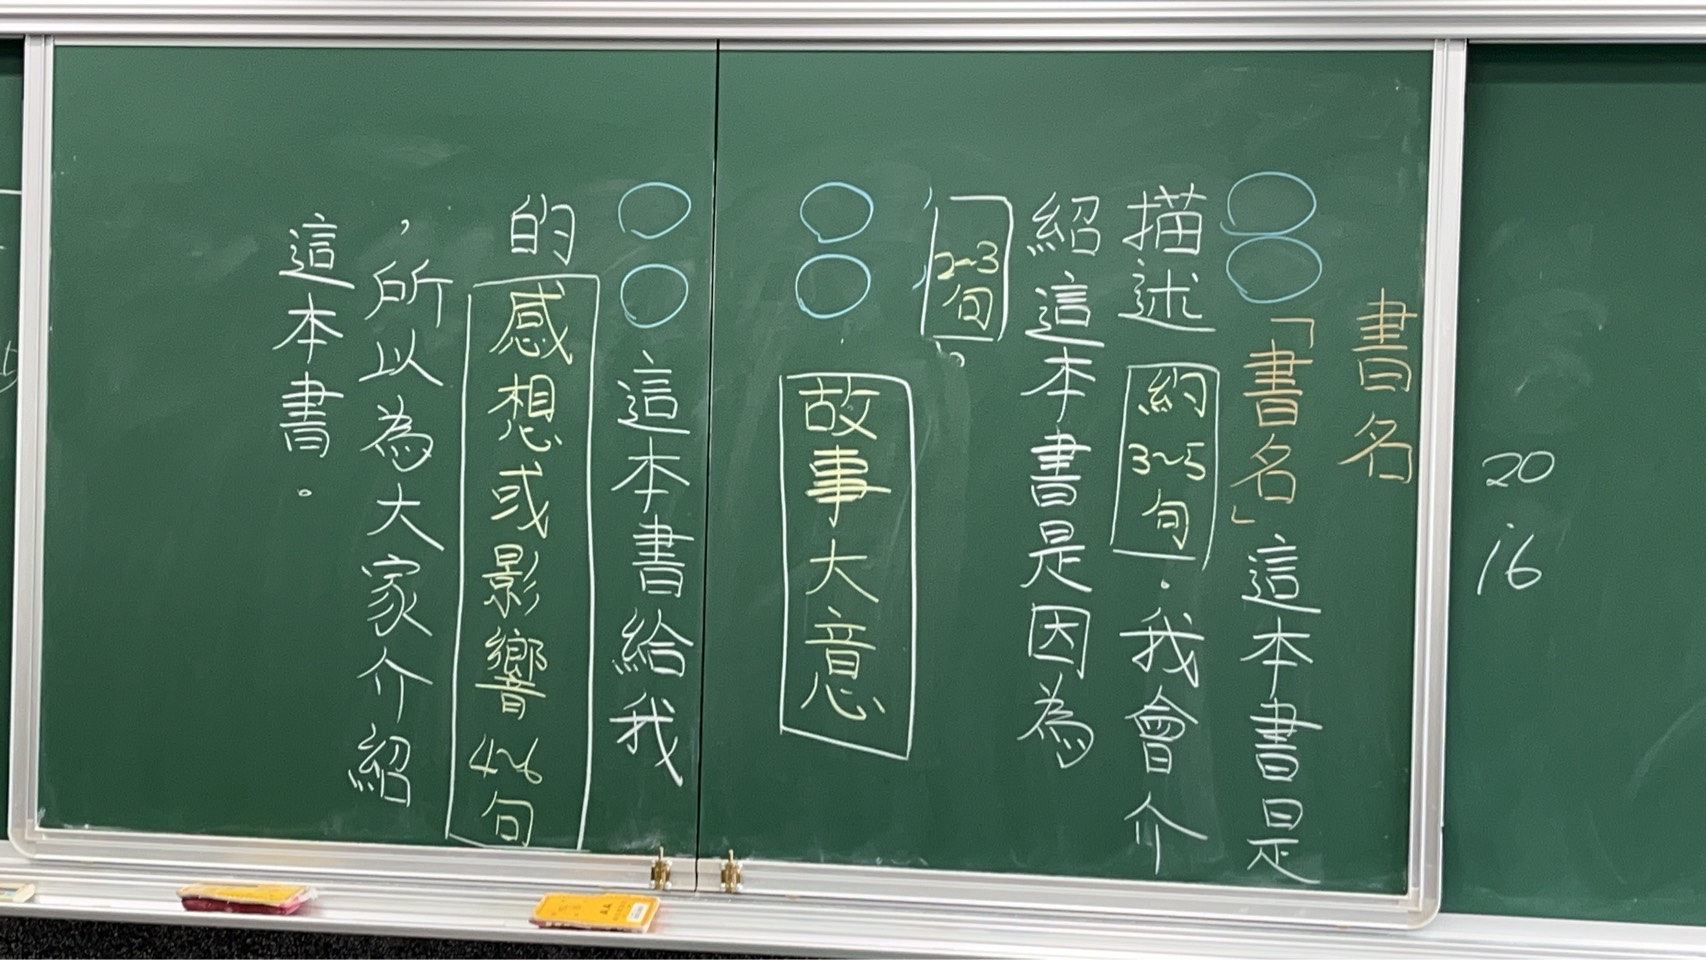 書名
○○「書名」這本書是
描述約3~5句。我會介
紹這本書是因為
，2~3句，。
○○故事大意
○○這本書給我
的感想或影響4~6句
，所以為大家介紹
這本書。
20
16